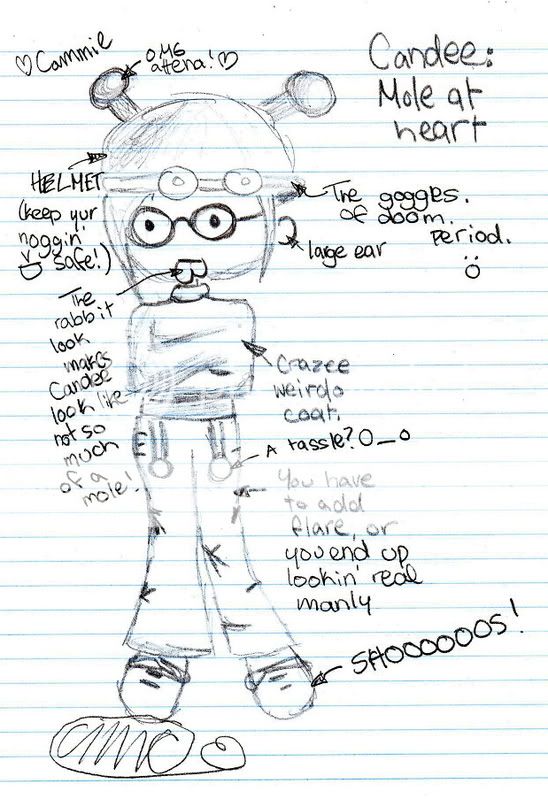 ♡Cammie
OMG
attena!♡
Candee:
Mole at
heart
HELMET
(keep yur
noggin'
safe!)
The goggles.
of doom.
Period.
large ear
The
rabbit
look
makes
Candee
look like
not so
much
of a
mole!
Crazee
weirdo
coat.
A tassle? O_o
You have
to add
flare, or
you end up
lookin' real
manly
SHOOOOOOS!